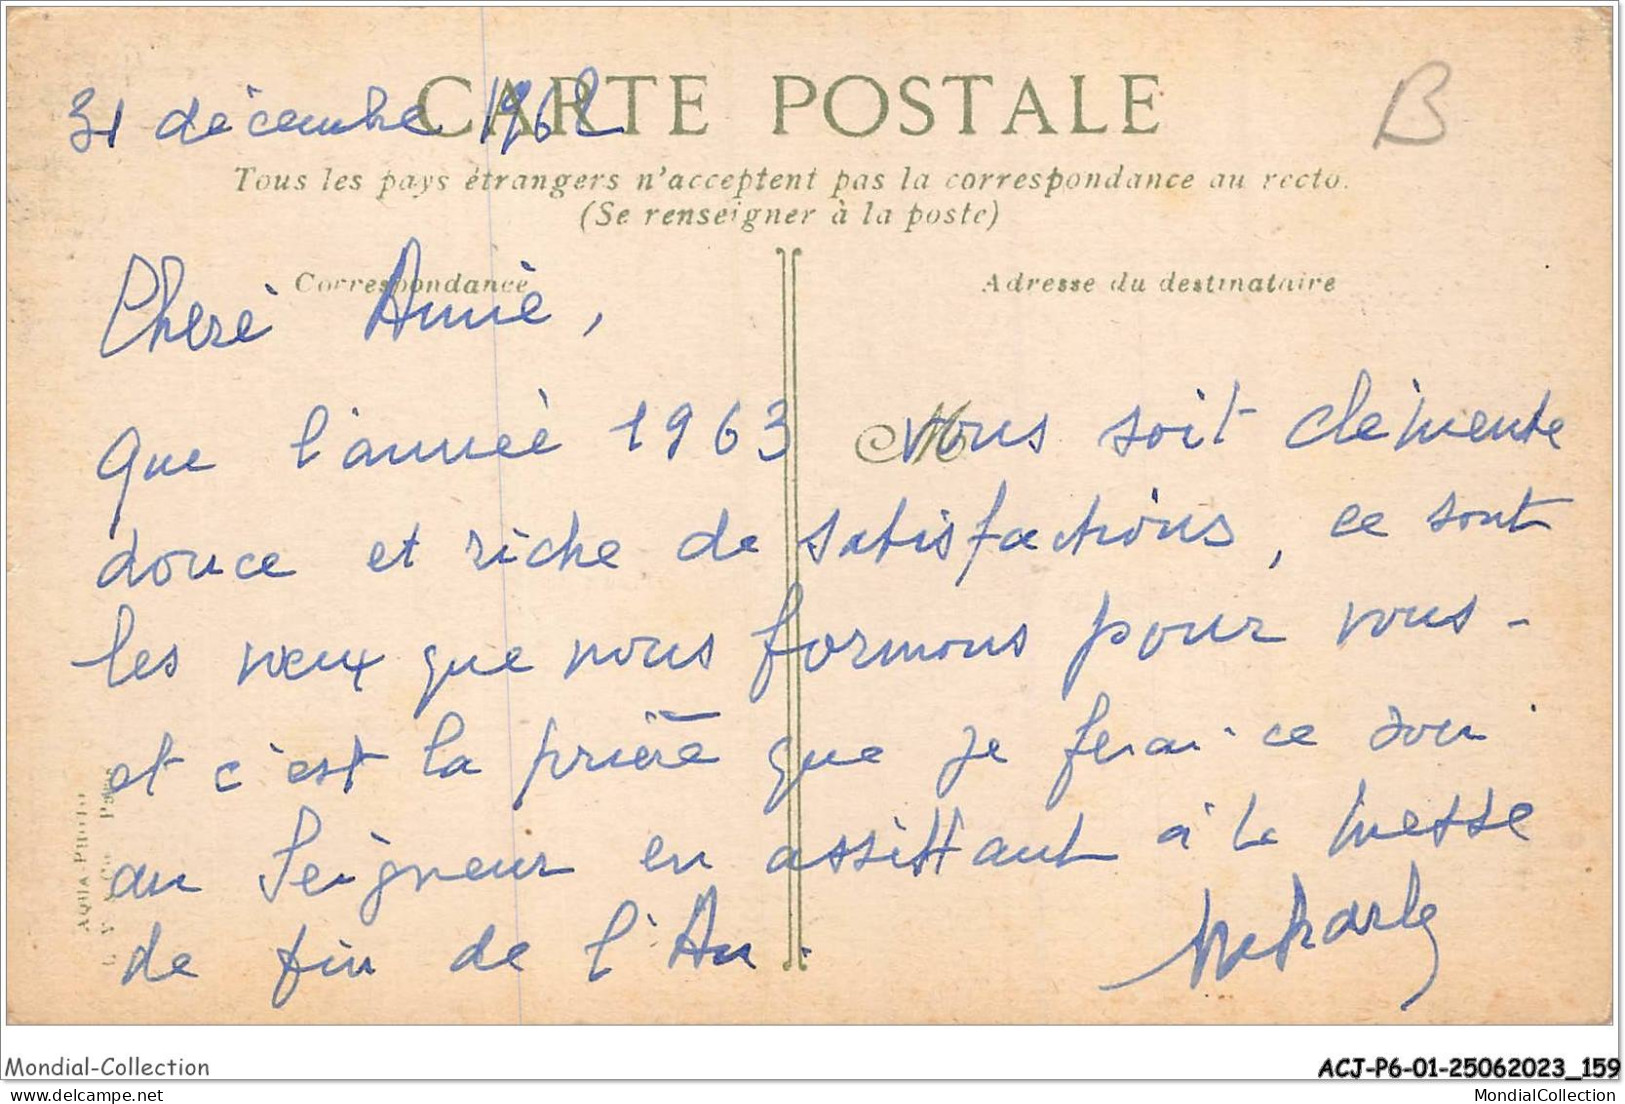 CARTE POSTALE
31 décembre 1962
B
Tous les pays étrangers n'acceptent pas la correspondance au recto.
(Se renseigner à la poste)
Correspondance
Adresse du destinataire
Chère Annie,
Que l'année 1963 vous soit clémente
douce et riche de satisfactions, ce sont
les vœux que nous formons pour vous -
et c'est la prière que je ferai ce soir
au Seigneur en assistant à la messe
de fin de l'An.
AQUA-PHOTO
Mondial-Collection
ACJ-P6-01-25062023_159
www.delcampe.net
MondialCollection